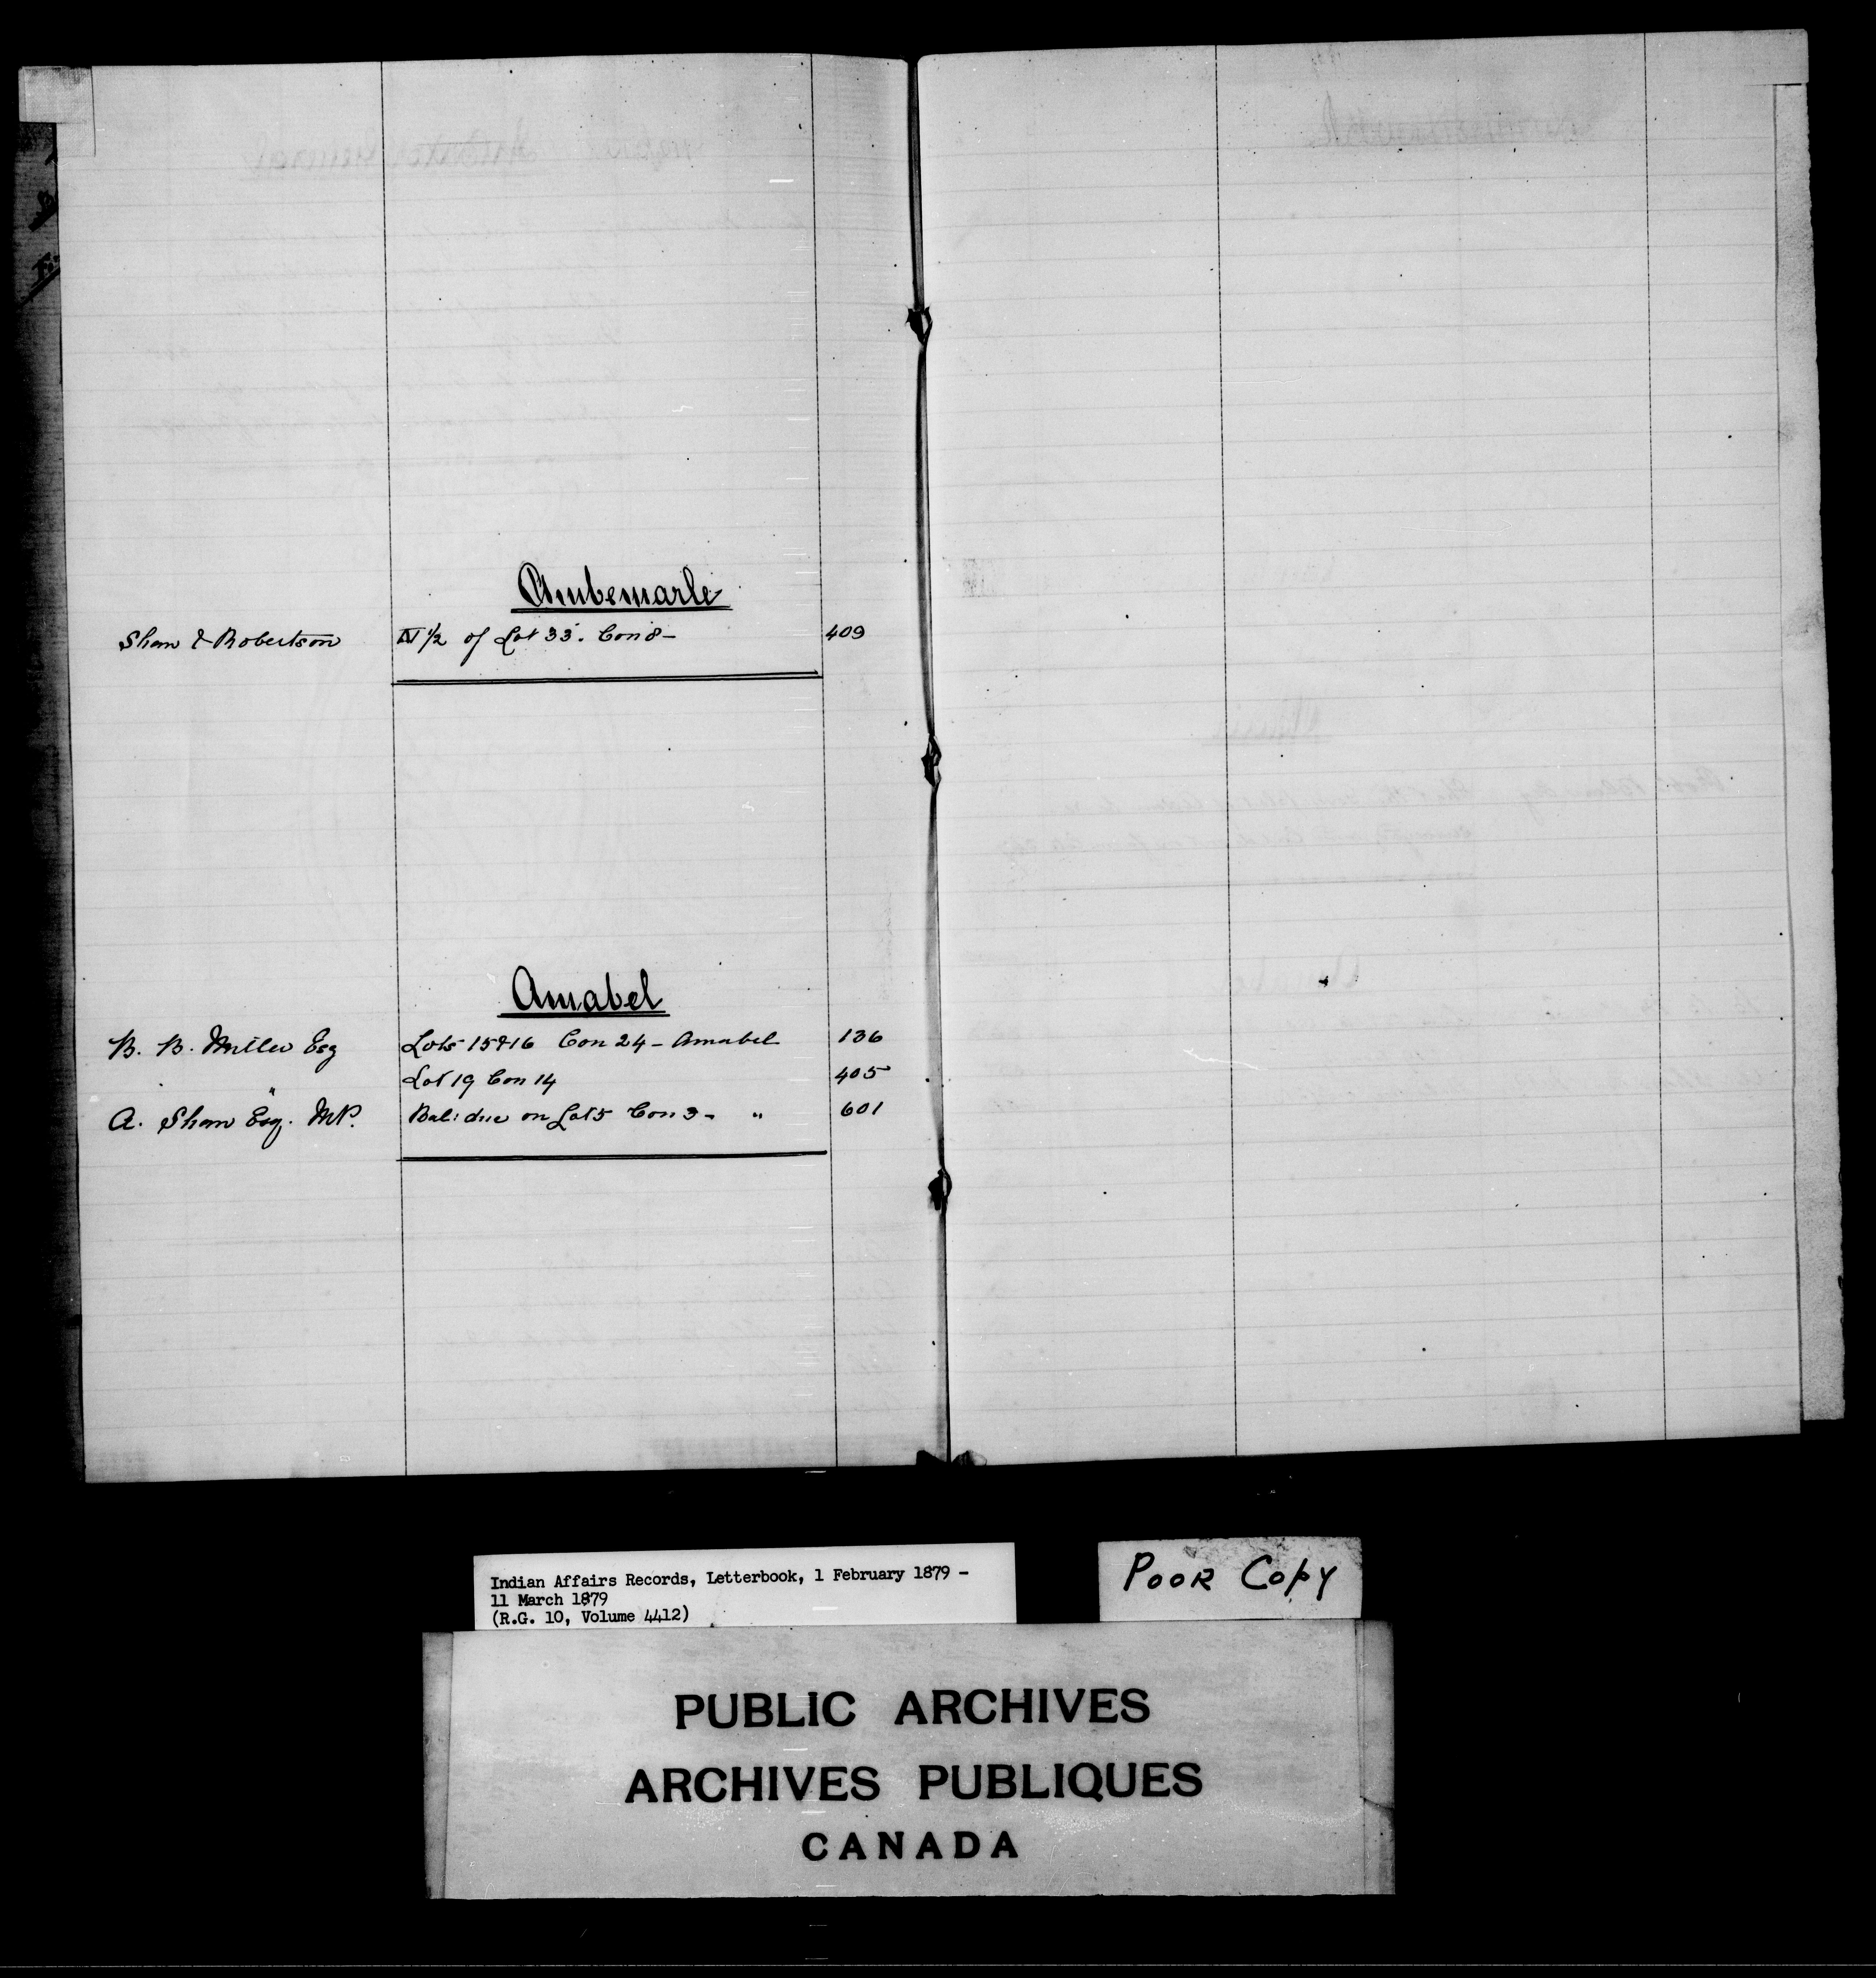 Ambemarle
Shaw & Robertson N 1/2 of Lot 33. Con 8 - 409
Amabel
B. B. Miller Esq Lots 15 & 16 Con 24 - Amabel 136
" Lot 19 Con 14 405
A. Shaw Esq. MP. Bal: due on Lot 5 Con 3 - " 601
Indian Affairs Records, Letterbook, 1 February 1879 -
11 March 1879
(R.G. 10, Volume 4412)
POOR COPY
PUBLIC ARCHIVES
ARCHIVES PUBLIQUES
CANADA